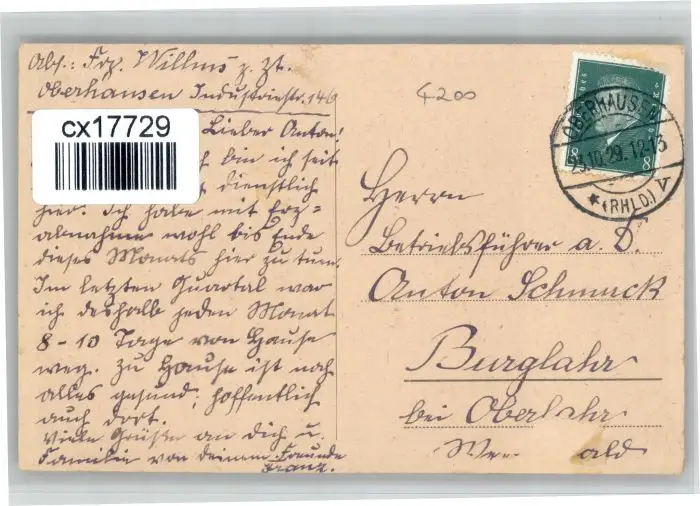 Abs.: Frz. Willms z. Zt.
Oberhausen Industriestr. 146
cx17729
Lieber Anton!
bin ich seit
dienstlich
hier. Ich habe mit Erz=
abnahme wohl bis Ende
dieses Monats hier zu tun.
Im letzten Quartal war
ich deshalb jeden Monat
8-10 Tage von Hause
weg. Zu Hause ist noch
alles gesund, hoffentlich
auch dort.
Viele Grüße an Dich u.
Familie von deinem Freunde
Franz.
4200
OBERHAUSEN
23.10.29.12-13
* (RHLD.) V
8
8
Herrn
Betriebsführer a. D.
Anton Schmuck
Burglahr
bei Oberlahr
ald